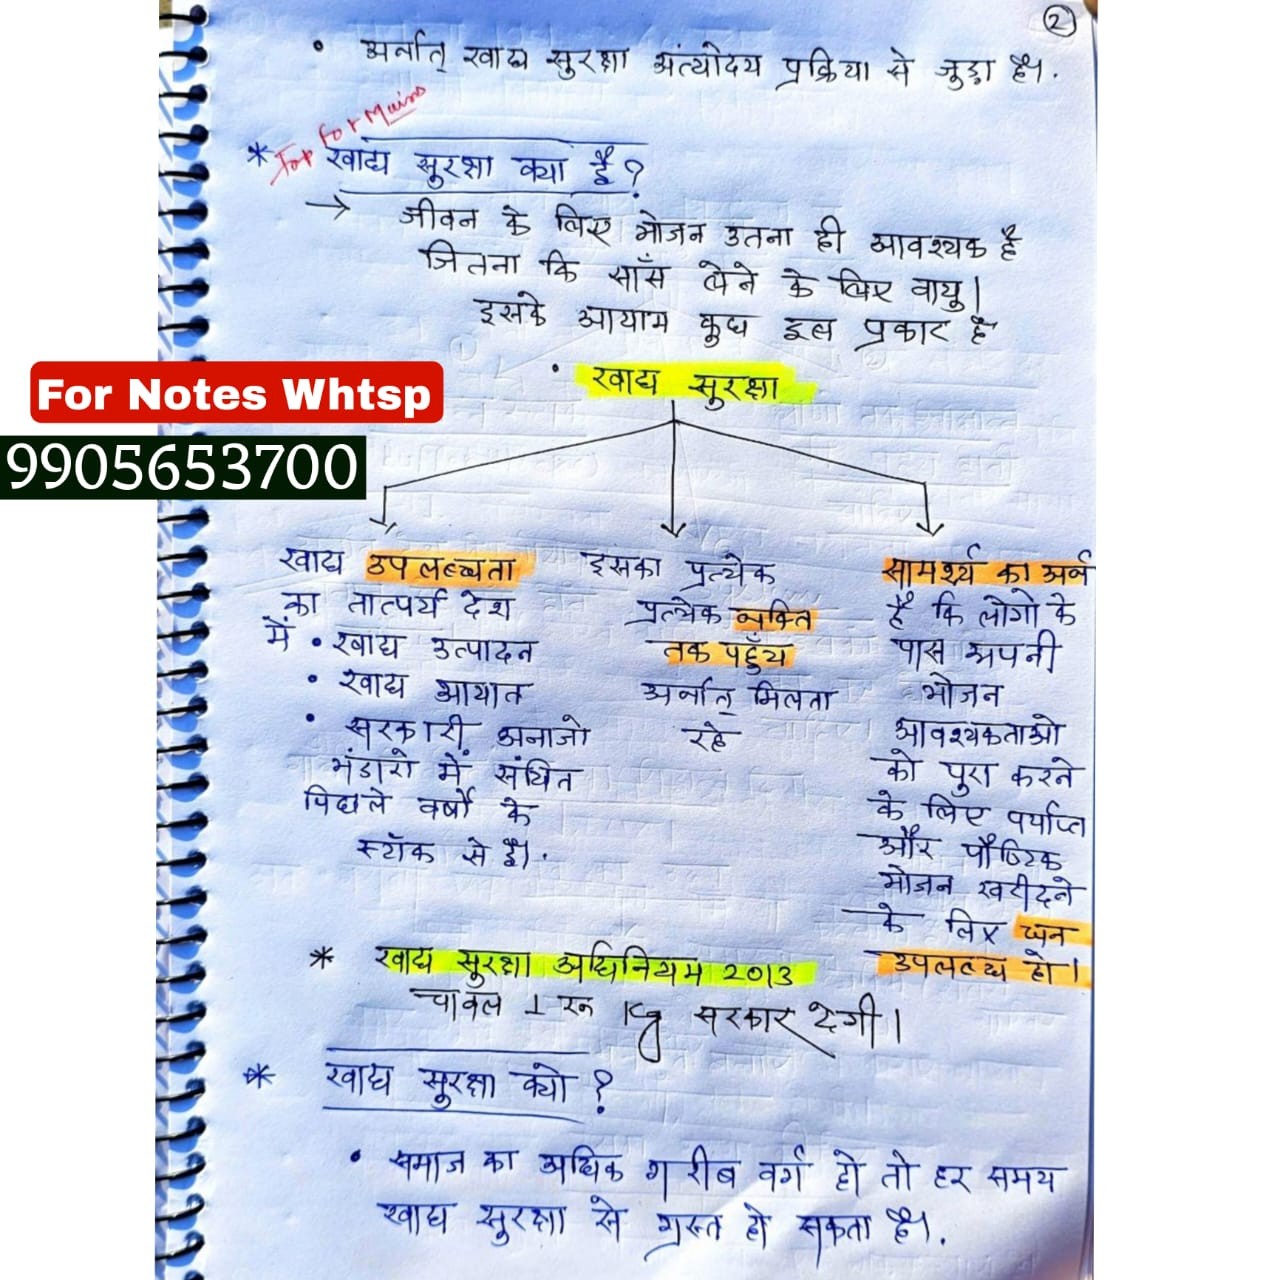 2
• अर्थात् खाद्य सुरक्षा अंत्योदय प्रक्रिया से जुड़ा है।
For Mains
* खाद्य सुरक्षा क्या है?
→ जीवन के लिए भोजन उतना ही आवश्यक है
जितना कि साँस लेने के लिए वायु।
इसके आयाम कुछ इस प्रकार है
• खाद्य सुरक्षा
For Notes Whtsp
9905653700
खाद्य उपलब्धता
का तात्पर्य देश
में • खाद्य उत्पादन
• खाद्य आयात
• सरकारी अनाजो
भंडारो में संचित
पिछले वर्षों के
स्टॉक से है।
इसका प्रत्येक
प्रत्येक व्यक्ति
तक पहुँच
अर्थात् मिलता
रहे
सामर्थ्य का अर्थ
है कि लोगो के
पास अपनी
भोजन
आवश्यकताओ
को पुरा करने
के लिए पर्याप्त
और पौष्टिक
भोजन खरीदने
के लिए धन
उपलब्ध हो।
* खाद्य सुरक्षा अधिनियम 2013
चावल 1 रु Kg सरकार देगी।
* खाद्य सुरक्षा क्यो ?
• समाज का अधिक गरीब वर्ग हो तो हर समय
खाद्य सुरक्षा से ग्रस्त हो सकता है।